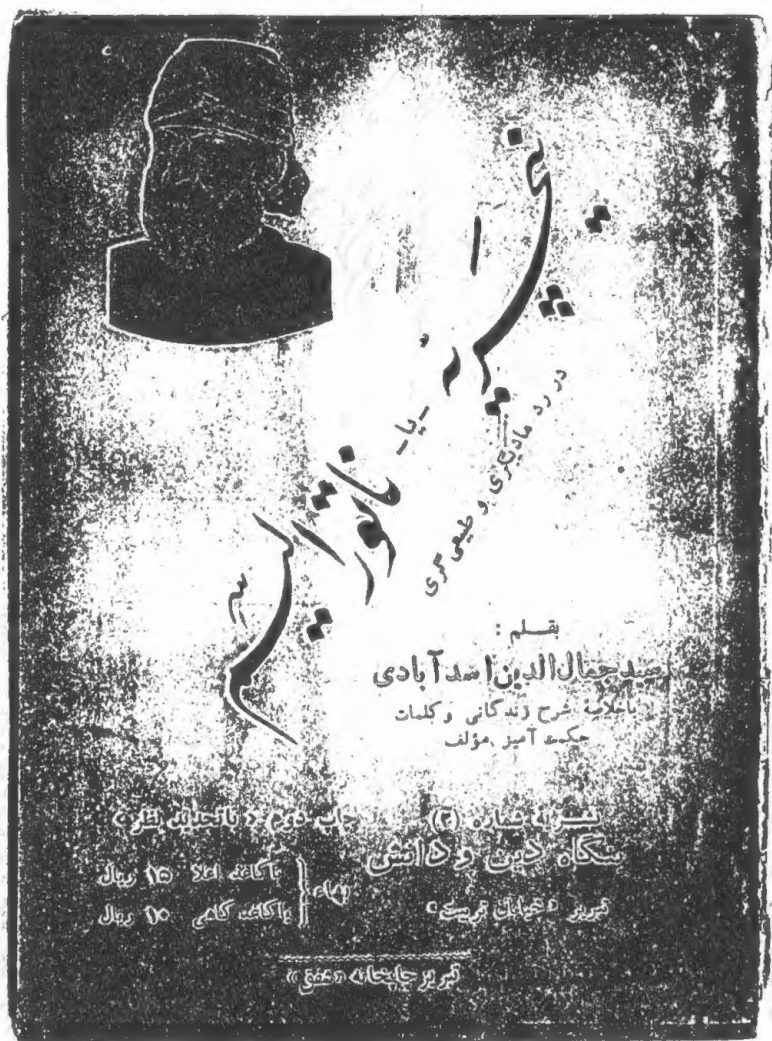 نیچریه
-یا-
ناتورالیسم
در رد مادیگری و طبیعی گری
بقلم :
سید جمال‌الدین اسدآبادی
باخلاصهٔ شرح زندگانی و کلمات
حکمت آمیز مؤلف
نشریهٔ شماره (۳) چاپ دوم « باتجدید نظر »
بنگاه دین و دانش
تبریز «خیابان تربیت»
بهاء { باکاغذ اعلا ۱۵ ریال
باکاغذ کاهی ۱۰ ریال
تبریز چاپخانه «شفق»